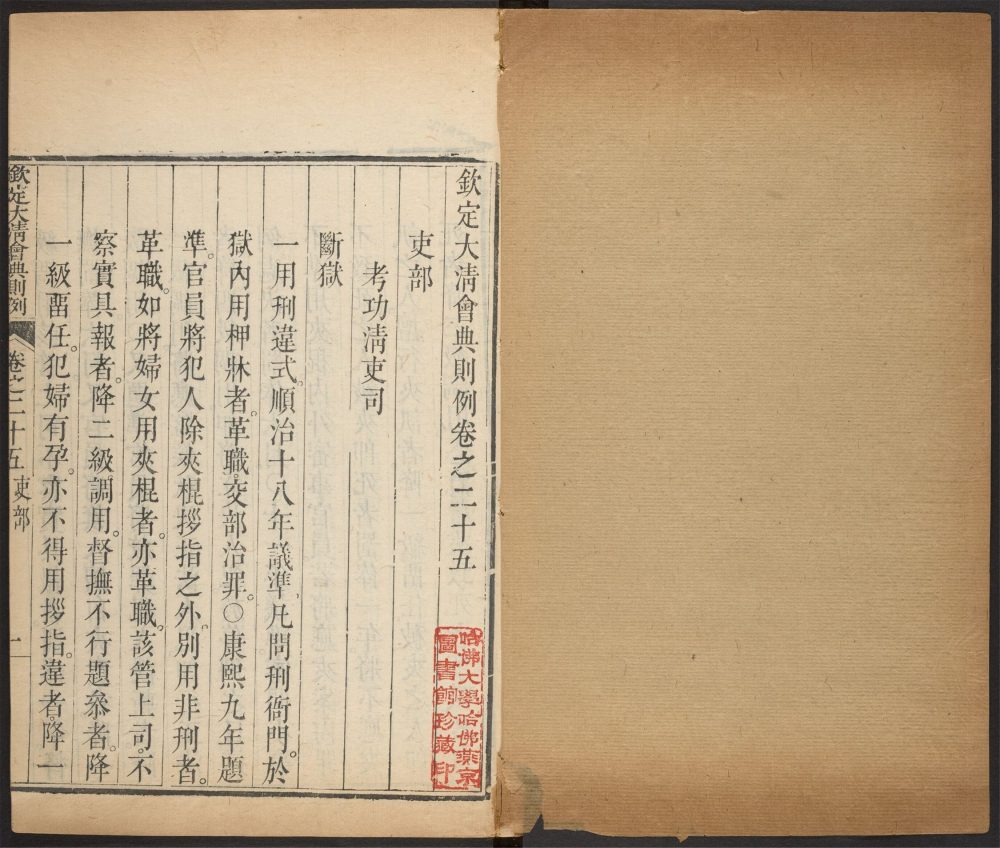 欽定大淸會典則例卷之二十五
吏部
考功淸吏司
斷獄
一用刑違式。順治十八年議準。凡問刑衙門。於
獄內用柙牀者。革職。交部治罪。○康熙九年題
準。官員將犯人除夾棍拶指之外。別用非刑者。
革職。如將婦女用夾棍者。亦革職。該管上司。不
察實具報者。降二級調用。督撫不行題叅者。降
一級畱任。犯婦有孕。亦不得用拶指。違者。降一
欽定大淸會典則例
卷之二十五 吏部
一
哈佛大學哈佛燕京
圖書館珍藏印